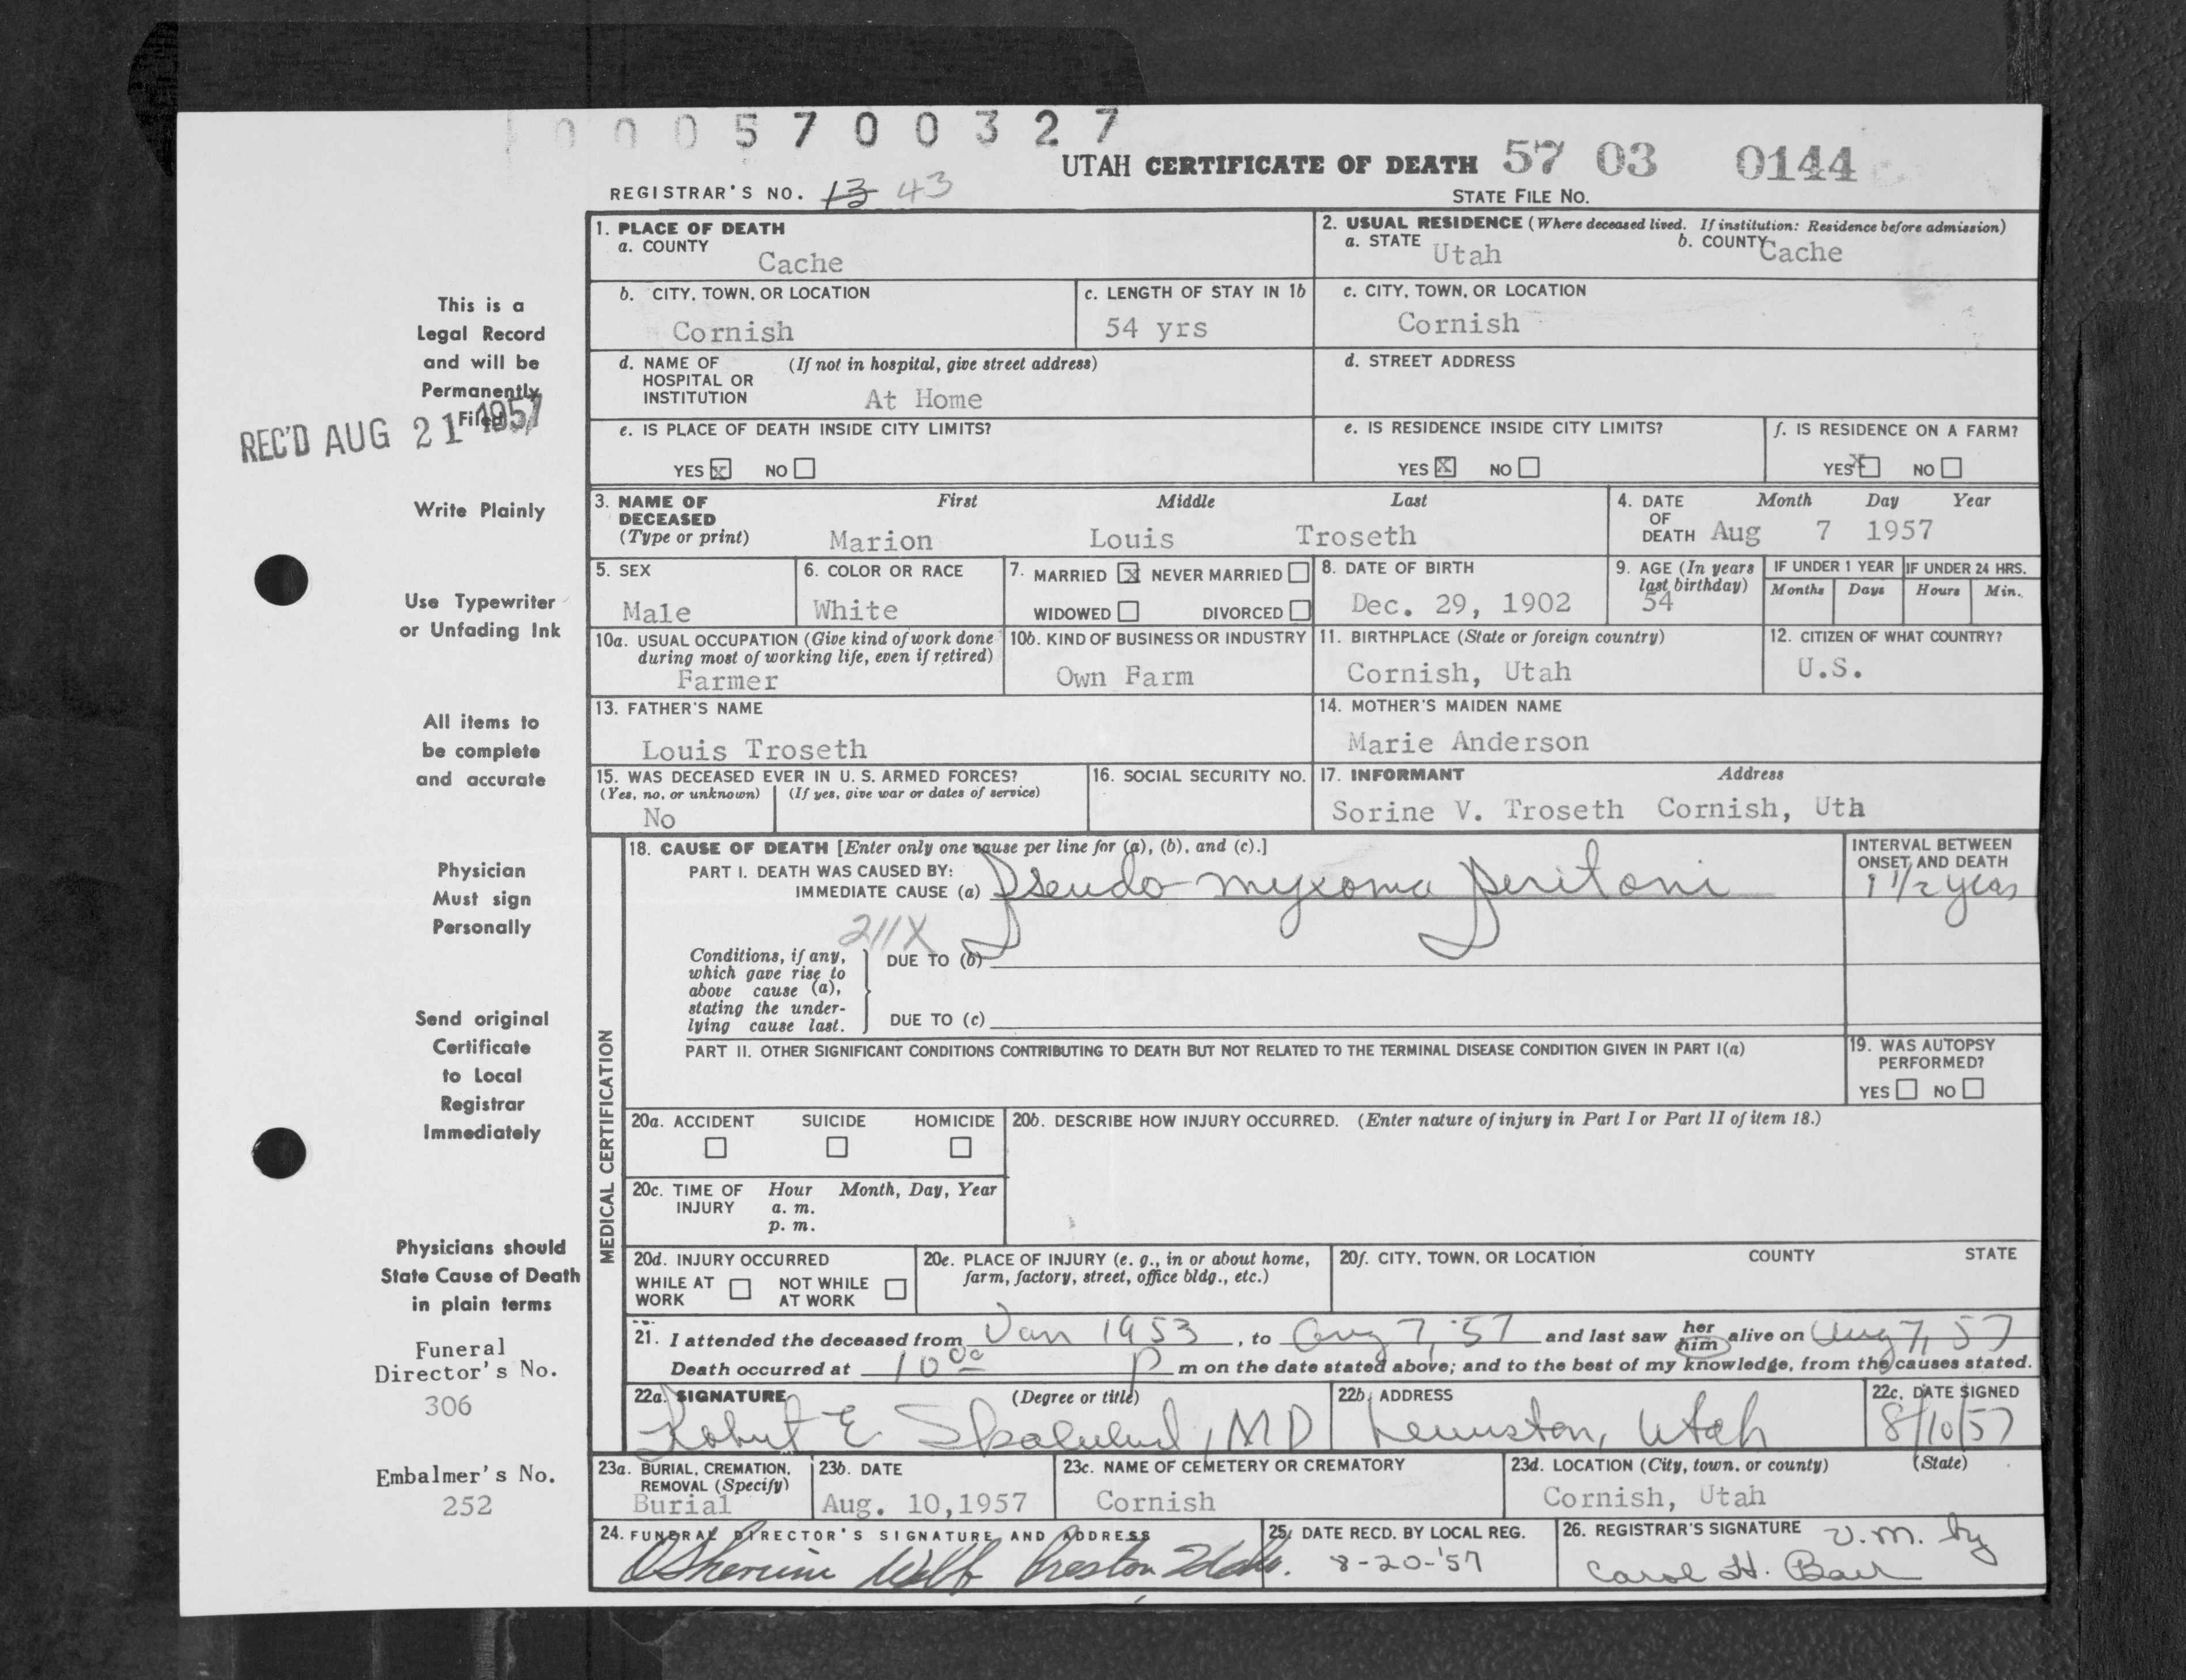 0005700327
UTAH CERTIFICATE OF DEATH 57 03 0144
REGISTRAR'S NO. 13 43
STATE FILE NO.
1. PLACE OF DEATH
a. COUNTY
Cache
2. USUAL RESIDENCE (Where deceased lived. If institution: Residence before admission)
a. STATE Utah b. COUNTY Cache
b. CITY, TOWN, OR LOCATION
Cornish
c. LENGTH OF STAY IN 1b
54 yrs
c. CITY, TOWN, OR LOCATION
Cornish
d. NAME OF (If not in hospital, give street address)
HOSPITAL OR
INSTITUTION At Home
d. STREET ADDRESS
e. IS PLACE OF DEATH INSIDE CITY LIMITS?
YES x NO
e. IS RESIDENCE INSIDE CITY LIMITS?
YES x NO
f. IS RESIDENCE ON A FARM?
YES x NO
3. NAME OF First Middle Last
DECEASED
(Type or print) Marion Louis Troseth
4. DATE Month Day Year
OF
DEATH Aug 7 1957
5. SEX
Male
6. COLOR OR RACE
White
7. MARRIED x NEVER MARRIED
WIDOWED DIVORCED
8. DATE OF BIRTH
Dec. 29, 1902
9. AGE (In years
last birthday)
54
IF UNDER 1 YEAR
Months Days
IF UNDER 24 HRS.
Hours Min.
10a. USUAL OCCUPATION (Give kind of work done
during most of working life, even if retired)
Farmer
10b. KIND OF BUSINESS OR INDUSTRY
Own Farm
11. BIRTHPLACE (State or foreign country)
Cornish, Utah
12. CITIZEN OF WHAT COUNTRY?
U.S.
13. FATHER'S NAME
Louis Troseth
14. MOTHER'S MAIDEN NAME
Marie Anderson
15. WAS DECEASED EVER IN U. S. ARMED FORCES?
(Yes, no, or unknown) (If yes, give war or dates of service)
No
16. SOCIAL SECURITY NO.
17. INFORMANT Address
Sorine V. Troseth Cornish, Uta
MEDICAL CERTIFICATION
18. CAUSE OF DEATH [Enter only one cause per line for (a), (b), and (c).]
PART I. DEATH WAS CAUSED BY:
IMMEDIATE CAUSE (a) Pseudo-myxoma peritoni
INTERVAL BETWEEN
ONSET AND DEATH
1 1/2 years
211X
Conditions, if any,
which gave rise to
above cause (a),
stating the under-
lying cause last.
DUE TO (b)
DUE TO (c)
PART II. OTHER SIGNIFICANT CONDITIONS CONTRIBUTING TO DEATH BUT NOT RELATED TO THE TERMINAL DISEASE CONDITION GIVEN IN PART I(a)
19. WAS AUTOPSY
PERFORMED?
YES NO
20a. ACCIDENT SUICIDE HOMICIDE
20b. DESCRIBE HOW INJURY OCCURRED. (Enter nature of injury in Part I or Part II of item 18.)
20c. TIME OF Hour Month, Day, Year
INJURY a. m.
p. m.
20d. INJURY OCCURRED
WHILE AT NOT WHILE
WORK AT WORK
20e. PLACE OF INJURY (e. g., in or about home,
farm, factory, street, office bldg., etc.)
20f. CITY, TOWN, OR LOCATION COUNTY STATE
21. I attended the deceased from Jan 1953, to Aug 7, '57 and last saw her him alive on Aug 7, 57
Death occurred at 10 00 P m on the date stated above; and to the best of my knowledge, from the causes stated.
22a. SIGNATURE (Degree or title)
Robert E. MD
22b. ADDRESS
Lewiston, Utah
22c. DATE SIGNED
8/10/57
23a. BURIAL, CREMATION,
REMOVAL (Specify)
Burial
23b. DATE
Aug. 10,1957
23c. NAME OF CEMETERY OR CREMATORY
Cornish
23d. LOCATION (City, town, or county) (State)
Cornish, Utah
24. FUNERAL DIRECTOR'S SIGNATURE AND ADDRESS
Webb Preston Idaho.
25. DATE RECD. BY LOCAL REG.
8-20-'57
26. REGISTRAR'S SIGNATURE v.m. by
Carol H.
This is a
Legal Record
and will be
Permanently
Filed
REC'D AUG 21 1957
Write Plainly
Use Typewriter
or Unfading Ink
All items to
be complete
and accurate
Physician
Must sign
Personally
Send original
Certificate
to Local
Registrar
Immediately
Physicians should
State Cause of Death
in plain terms
Funeral
Director's No.
306
Embalmer's No.
252